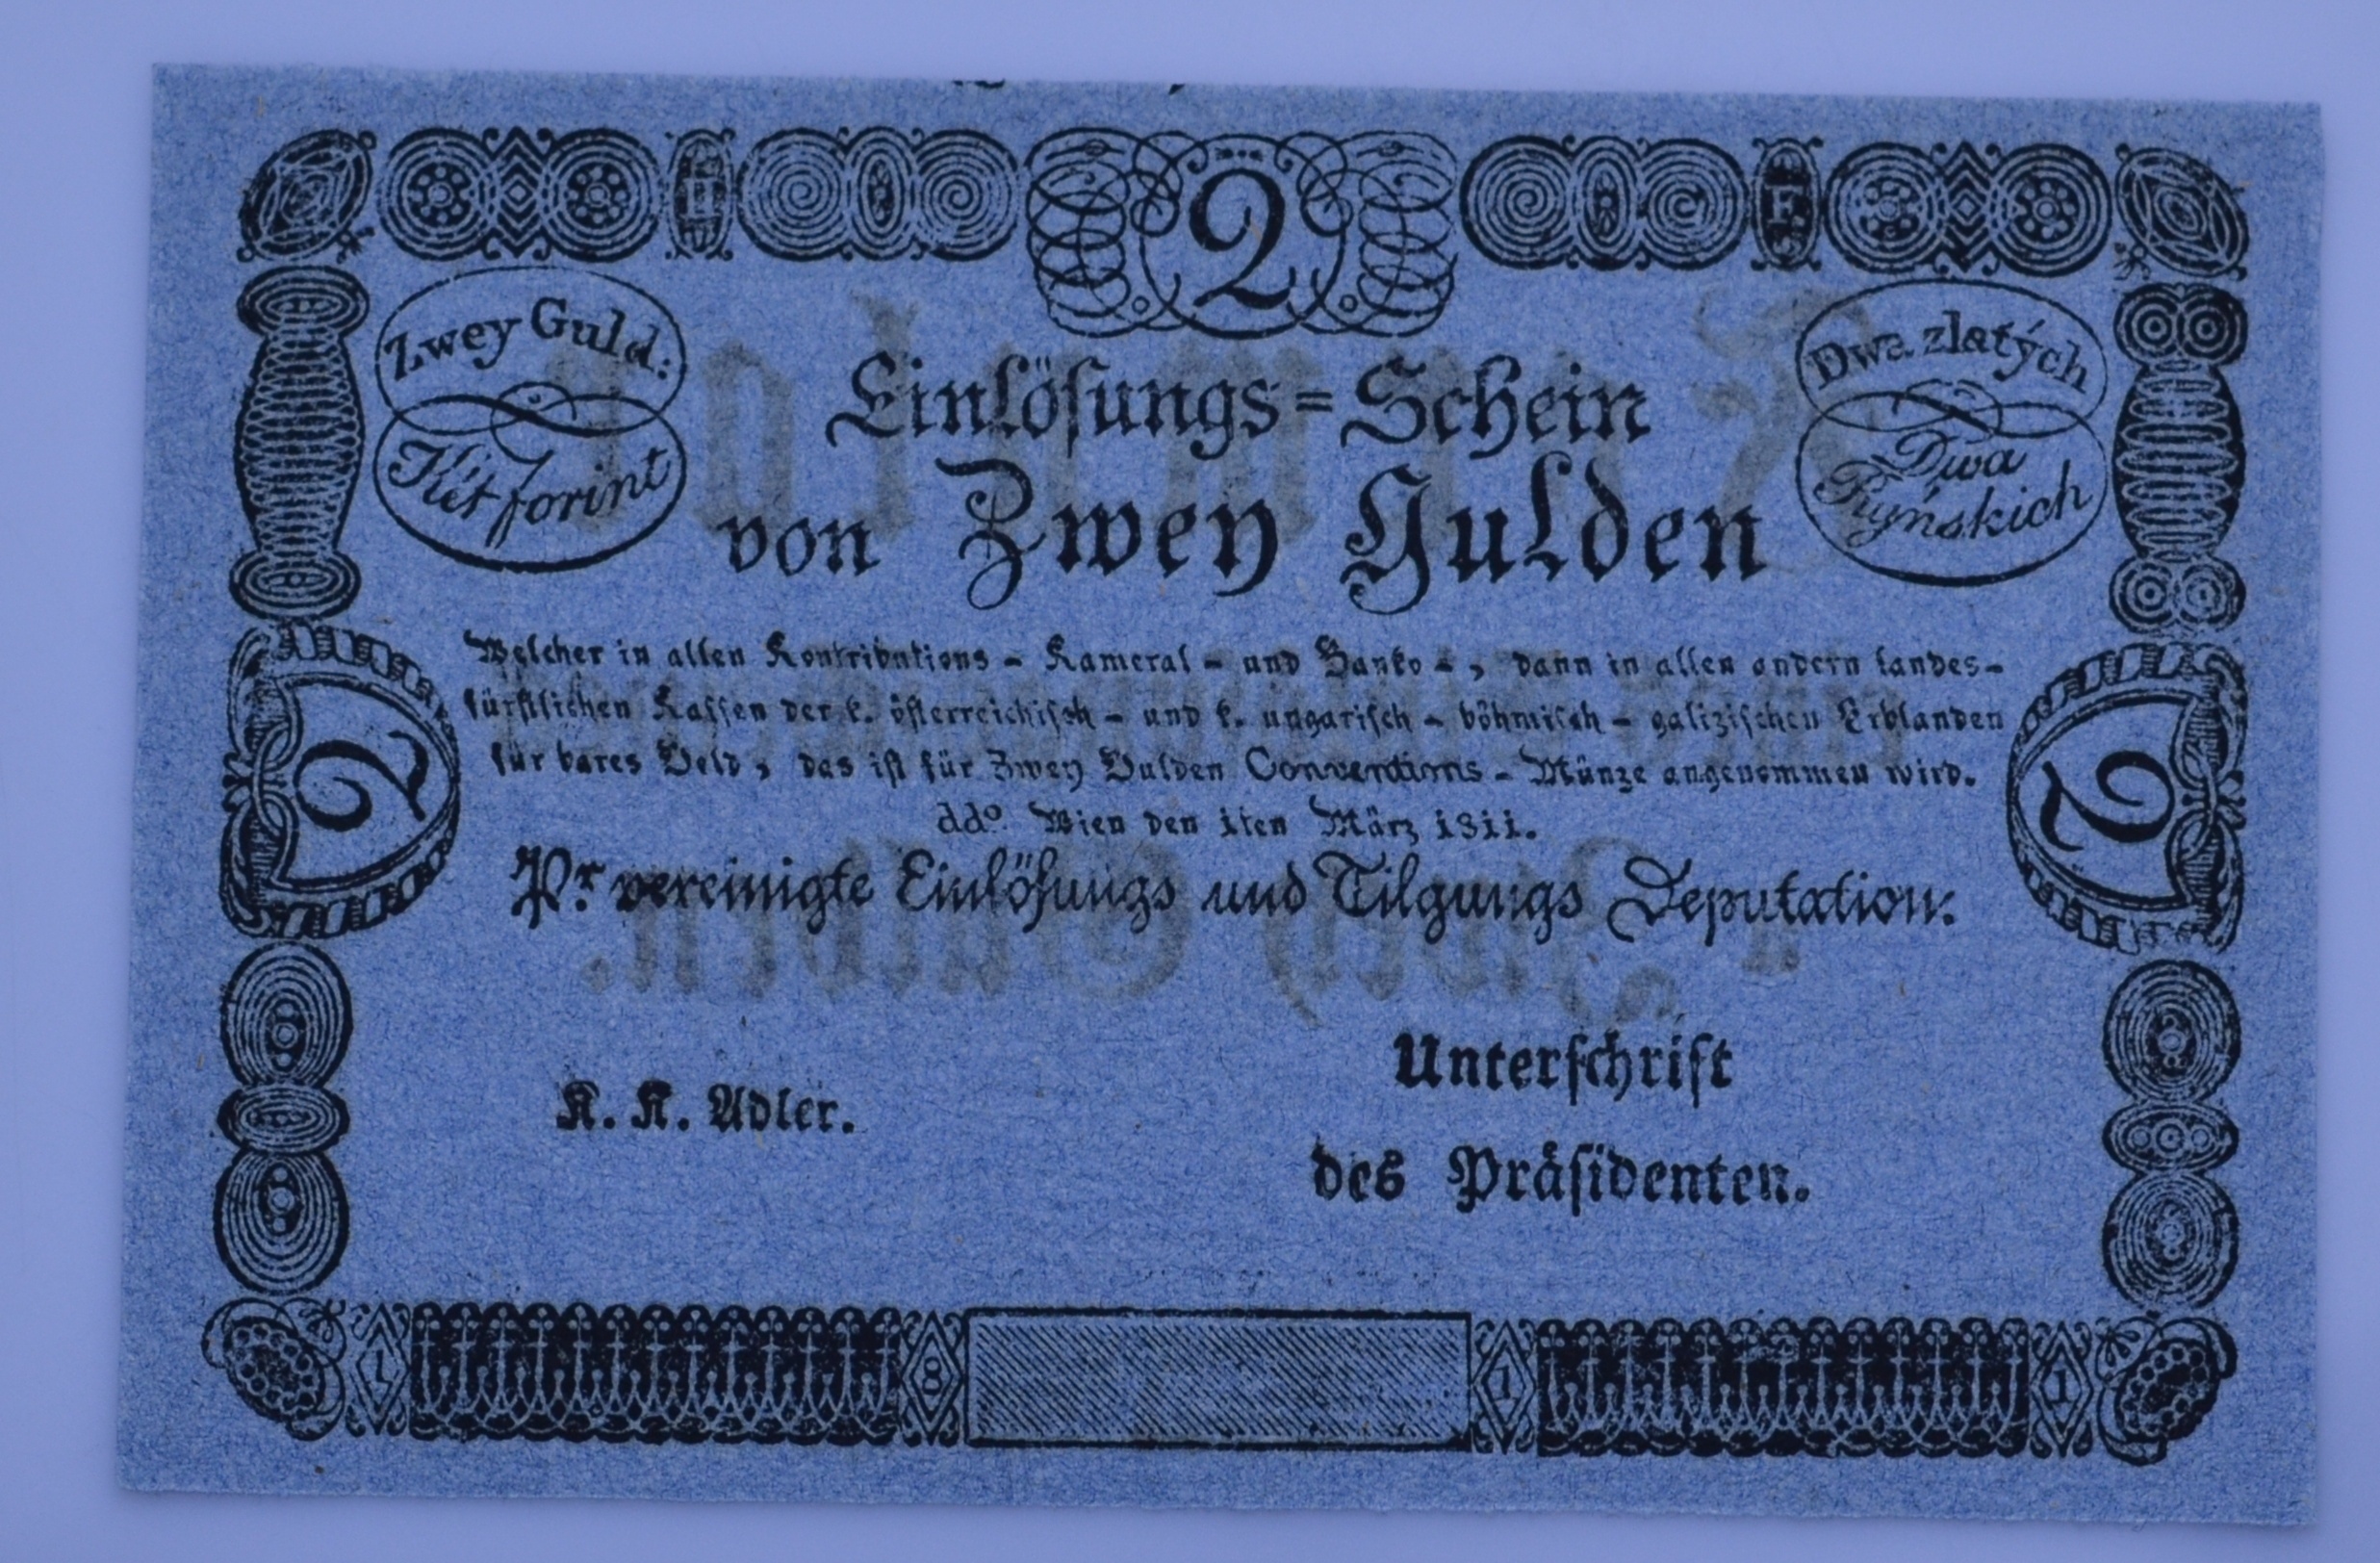 2
Zwey Guld:
Két forint
Dwa zlatých
Dwa
Ryńskich
Einlösungs=Schein
von Zwey Gulden
Welcher in allen Kontributions - Kameral - und Banko -, dann in allen andern landes-
fürstlichen Kassen der k. österreichisch - und k. ungarisch - böhmisch - galizischen Erblanden
für bares Geld, das ist für Zwey Gulden Conventions - Münze angenommen wird.
ddo. Wien den 1ten März 1811.
2
2
Pr. vereinigte Einlösungs und Tilgungs Deputation:
K. K. Adler.
Unterschrift
des Präsidenten.
1 8 1 1